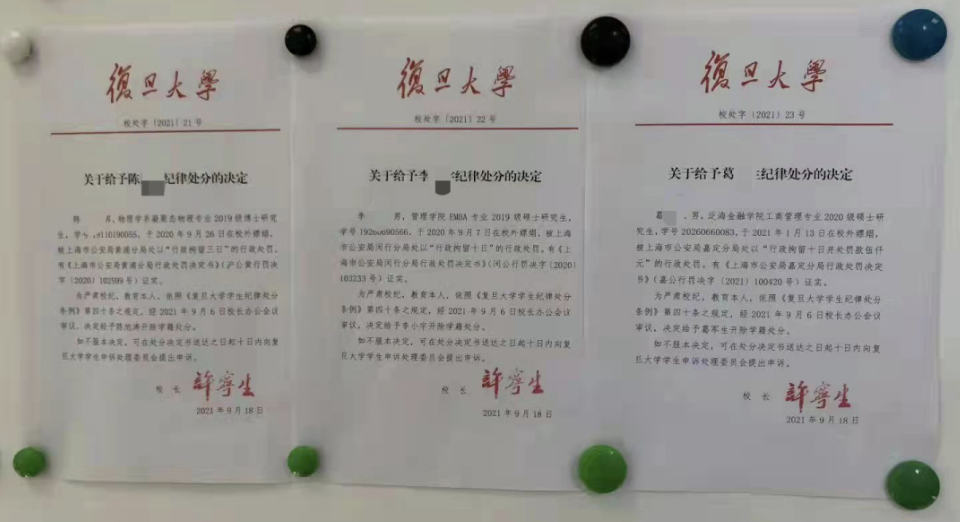 復旦大學
校处字〔2021〕21号
关于给予陈 纪律处分的决定
陈 男，物理学系凝聚态物理专业2019级博士研究
生，学 19110190055，于2020年9月26日在校外嫖娼，
被上海市公安局黄浦分局处以“行政拘留三日”的行政处罚，
有《上海市公安局黄浦分局行政处罚决定书》（沪公黄行罚决
字〔2020〕102599号）证实。
为严肃校纪，教育本人，依照《复旦大学学生纪律处分
条例》第四十条之规定，经2021年9月6日校长办公会议
审议，决定给予陈 开除学籍处分。
如不服本决定，可在处分决定书送达之日起十日内向复
旦大学学生申诉处理委员会提出申诉。
校 长 許寧生
2021年9月18日
復旦大學
校处字〔2021〕22号
关于给予李 纪律处分的决定
李 男，管理学院EMBA专业2019级硕士研究生，
学号 ，于2020年9月7日在校外嫖娼，被上海
市公安局闵行分局处以“行政拘留十日”的行政处罚，有《上
海市公安局闵行分局行政处罚决定书》（闵公行罚决字〔2020〕
103233号）证实。
为严肃校纪，教育本人，依照《复旦大学学生纪律处分
条例》第四十条之规定，经2021年9月6日校长办公会议
审议，决定给予李小宇开除学籍处分。
如不服本决定，可在处分决定书送达之日起十日内向复
旦大学学生申诉处理委员会提出申诉。
校 长 許寧生
2021年9月18日
復旦大學
校处字〔2021〕23号
关于给予葛 纪律处分的决定
葛 ，男，泛海金融学院工商管理专业2020级硕士研
究生，学号20260660083，于2021年1月13日在校外嫖娼，
被上海市公安局嘉定分局处以“行政拘留十日并处罚款伍仟
元”的行政处罚，有《上海市公安局嘉定分局行政处罚决定
书》（嘉公行罚决字〔2021〕100420号）证实。
为严肃校纪，教育本人，依照《复旦大学学生纪律处分
条例》第四十条之规定，经2021年9月6日校长办公会议
审议，决定给予葛军生开除学籍处分。
如不服本决定，可在处分决定书送达之日起十日内向复
旦大学学生申诉处理委员会提出申诉。
校 长 許寧生
2021年9月18日